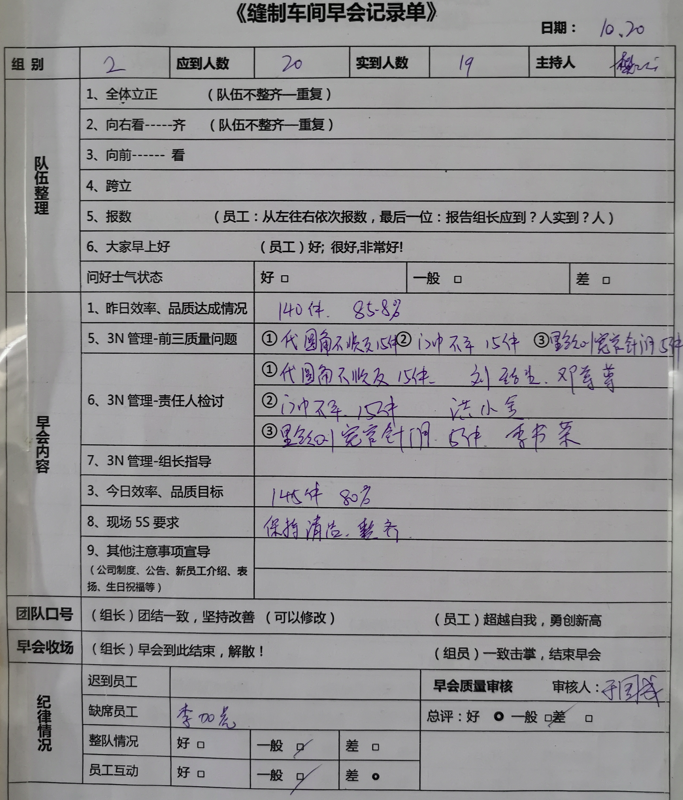 《缝制车间早会记录单》
日期： 10.20
组 别 2 应到人数 20 实到人数 19 主持人
队伍整理
1、全体立正 （队伍不整齐—重复）
2、向右看-----齐 （队伍不整齐—重复）
3、向前------ 看
4、跨立
5、报数 （员工：从左往右依次报数，最后一位：报告组长应到？人实到？人）
6、大家早上好 （员工）好; 很好,非常好!
问好士气状态 好 □ 一般 □ 差 □
早会内容
1、昨日效率、品质达成情况 140件. 85-8%
5、3N 管理-前三质量问题 ①代圆角不顺反15件 ②门巾不平 15件 ③ 5件
6、3N 管理-责任人检讨
①代圆角不顺反 15件. 刘 邓
②门巾不平 15件 洪小
③ 5件. 李书荣
7、3N 管理-组长指导
3、今日效率、品质目标 145件 80%
8、现场 5S 要求 保持清洁. 整齐.
9、其他注意事项宣导
（公司制度、公告、新员工介绍、表
扬、生日祝福等）
团队口号 （组长）团结一致，坚持改善 （可以修改） （员工）超越自我，勇创新高
早会收场 （组长）早会到此结束，解散！ （组员）一致击掌，结束早会
纪律情况
迟到员工 早会质量审核 审核人：于国
缺席员工 李加亮 总评：好 一般 □差 □
整队情况 好 □ 一般 □ 差 □
员工互动 好 □ 一般 □ 差